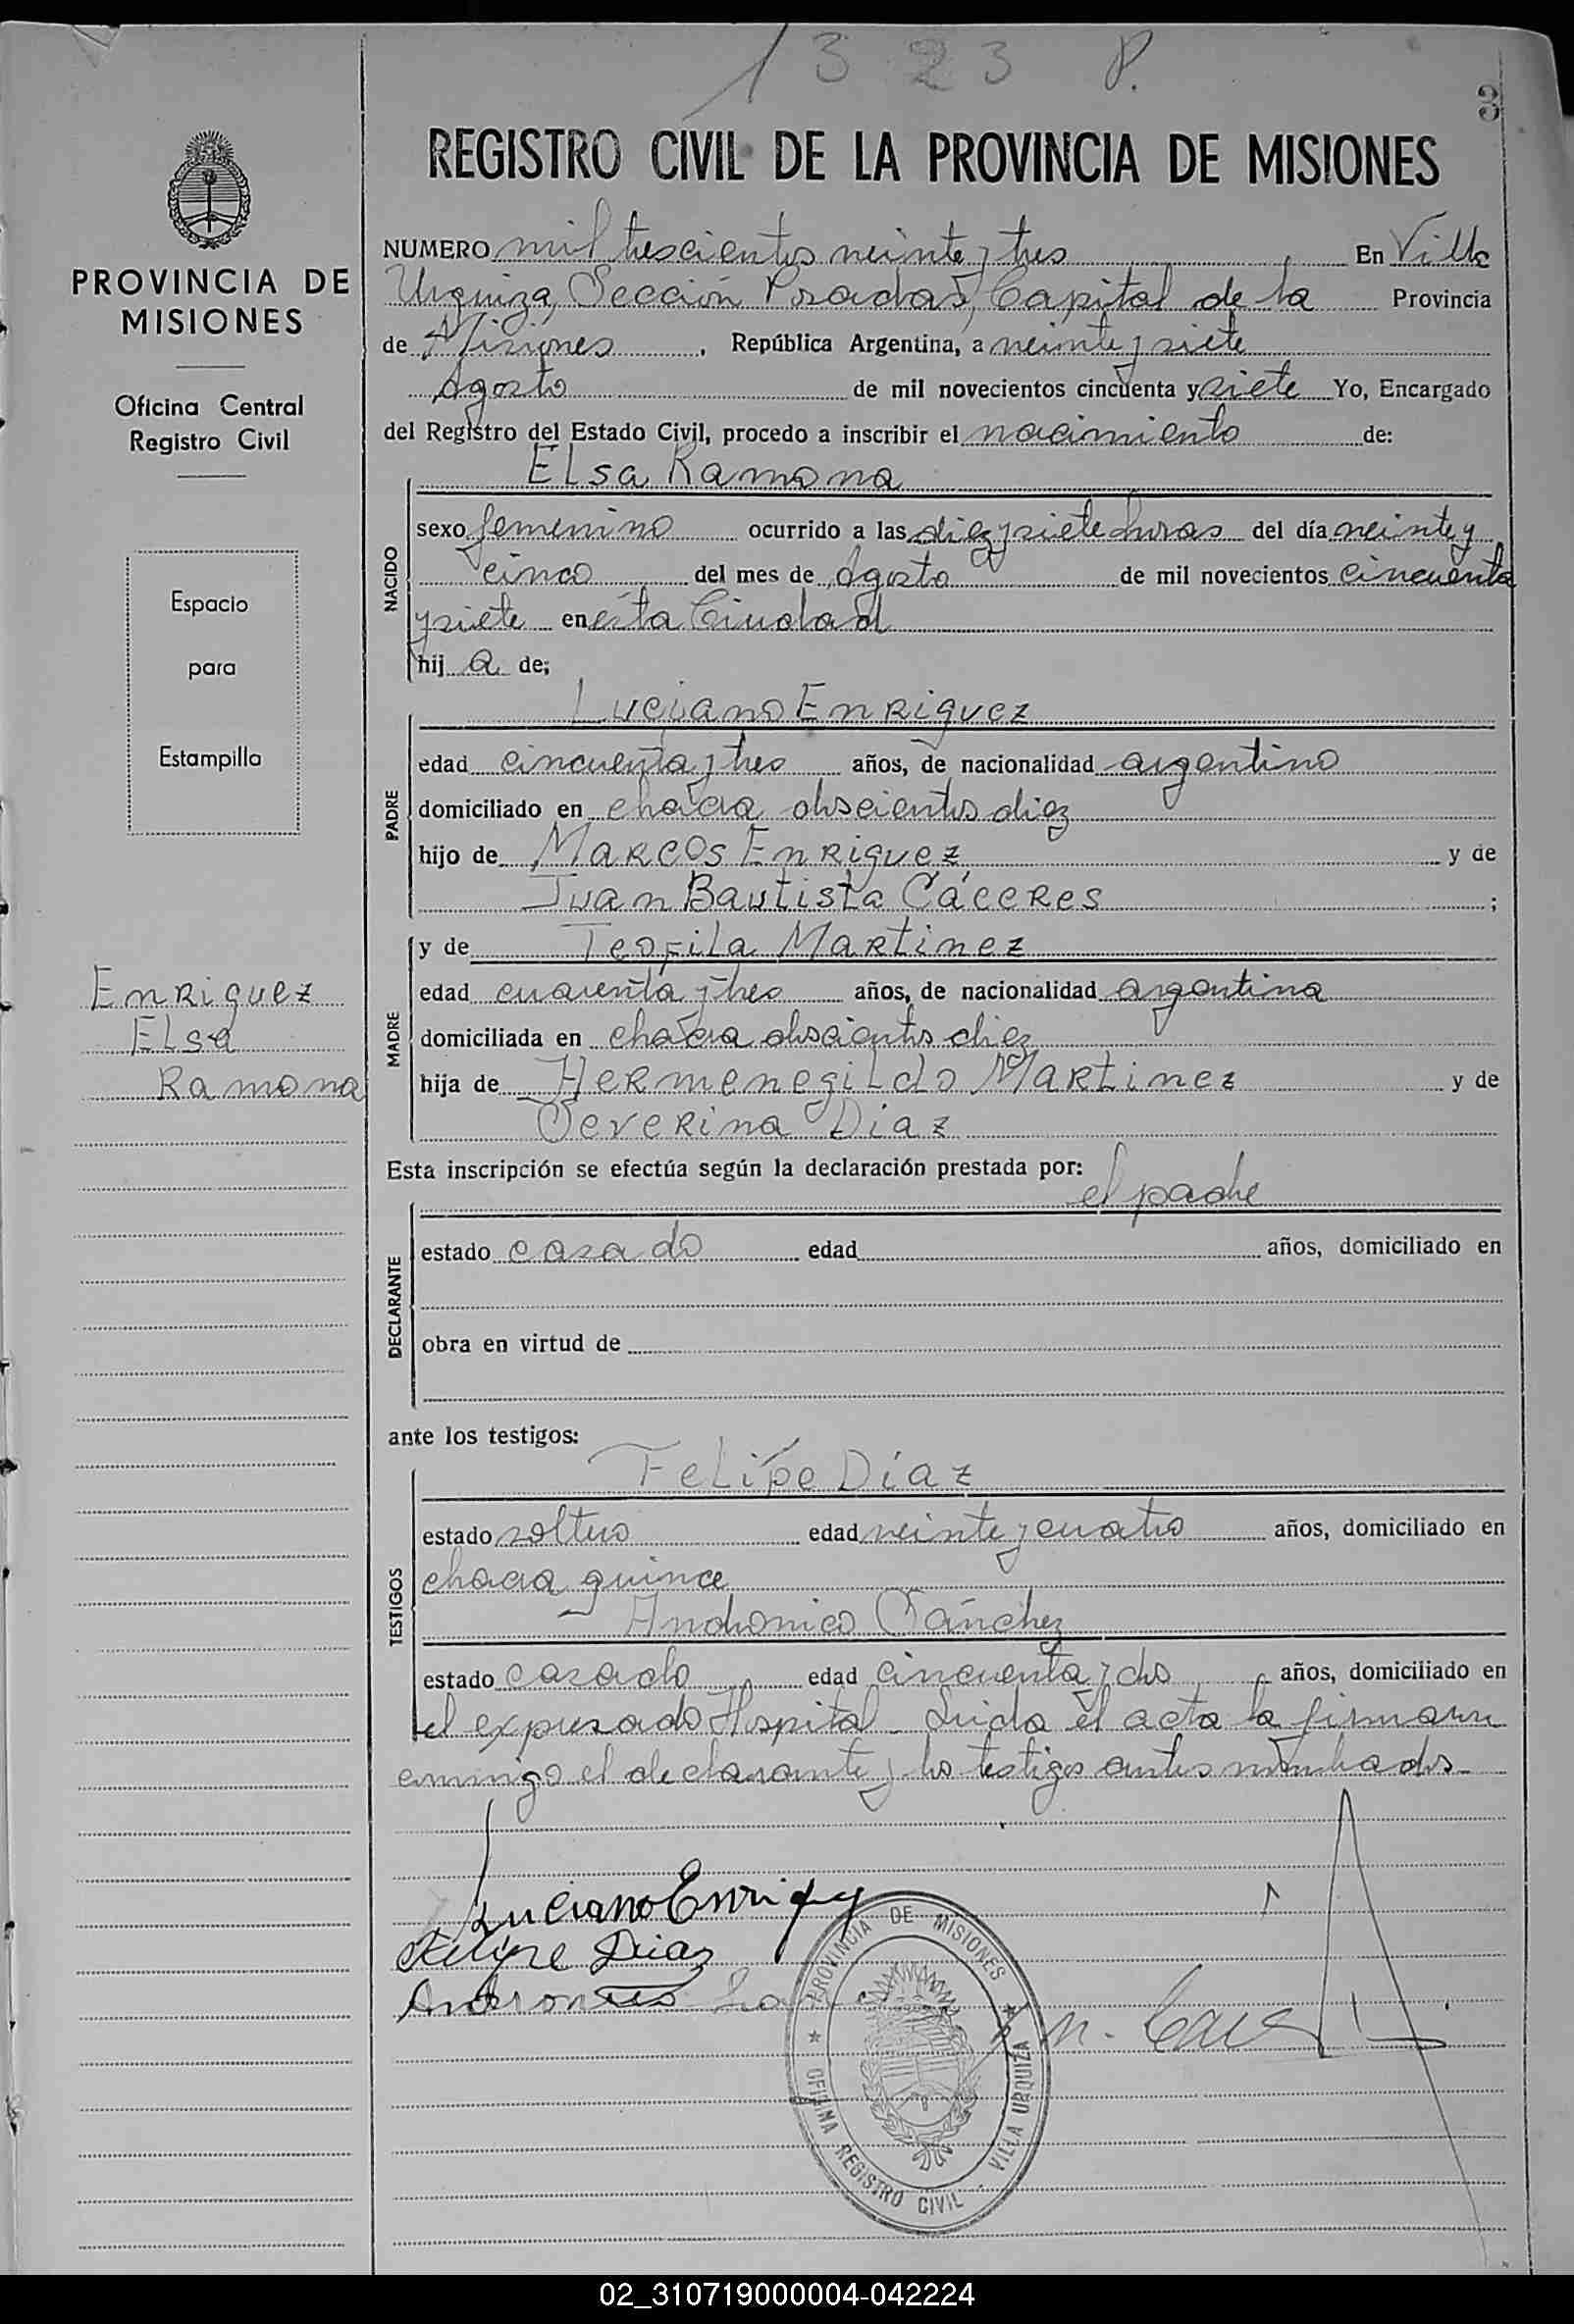 1323 P.
3
REGISTRO CIVIL DE LA PROVINCIA DE MISIONES
PROVINCIA DE
MISIONES
Oficina Central
Registro Civil
Espacio
para
Estampilla
Enriquez
Elsa
Ramona
NUMERO mil trescientos veinte y tres En Villa
Urquiza, Sección Posadas, Capital de la Provincia
de Misiones, República Argentina, a veinte y siete
Agosto de mil novecientos cincuenta y siete Yo, Encargado
del Registro del Estado Civil, procedo a inscribir el nacimiento de:
Elsa Ramona
NACIDO
sexo femenino ocurrido a las diez y siete horas del día veinte y
cinco del mes de Agosto de mil novecientos cincuenta
y siete en ésta Ciudad
hij a de;
Luciano Enriquez
PADRE
edad cincuenta y tres años, de nacionalidad argentino
domiciliado en chacra doscientos diez
hijo de Marcos Enriquez y de
Juan Bautista Cáceres ;
y de Teofila Martinez
MADRE
edad cuarenta y tres años, de nacionalidad argentina
domiciliada en chacra doscientos diez
hija de Hermenegildo Martinez y de
Severina Diaz
Esta inscripción se efectúa según la declaración prestada por:
el padre
DECLARANTE
estado casado edad años, domiciliado en
obra en virtud de
ante los testigos:
Felipe Díaz
TESTIGOS
estado soltero edad veinte y cuatro años, domiciliado en
chacra quince
Andronico Sánchez
estado casado edad cincuenta y dos años, domiciliado en
el expresado Hospital. Leida el acta la firmaron
conmigo el declarante y los testigos antes nombrados
Luciano Enriquez
Felipe Diaz
PROVINCIA DE MISIONES
OFICINA REGISTRO CIVIL - VILLA URQUIZA
02_310719000004-042224